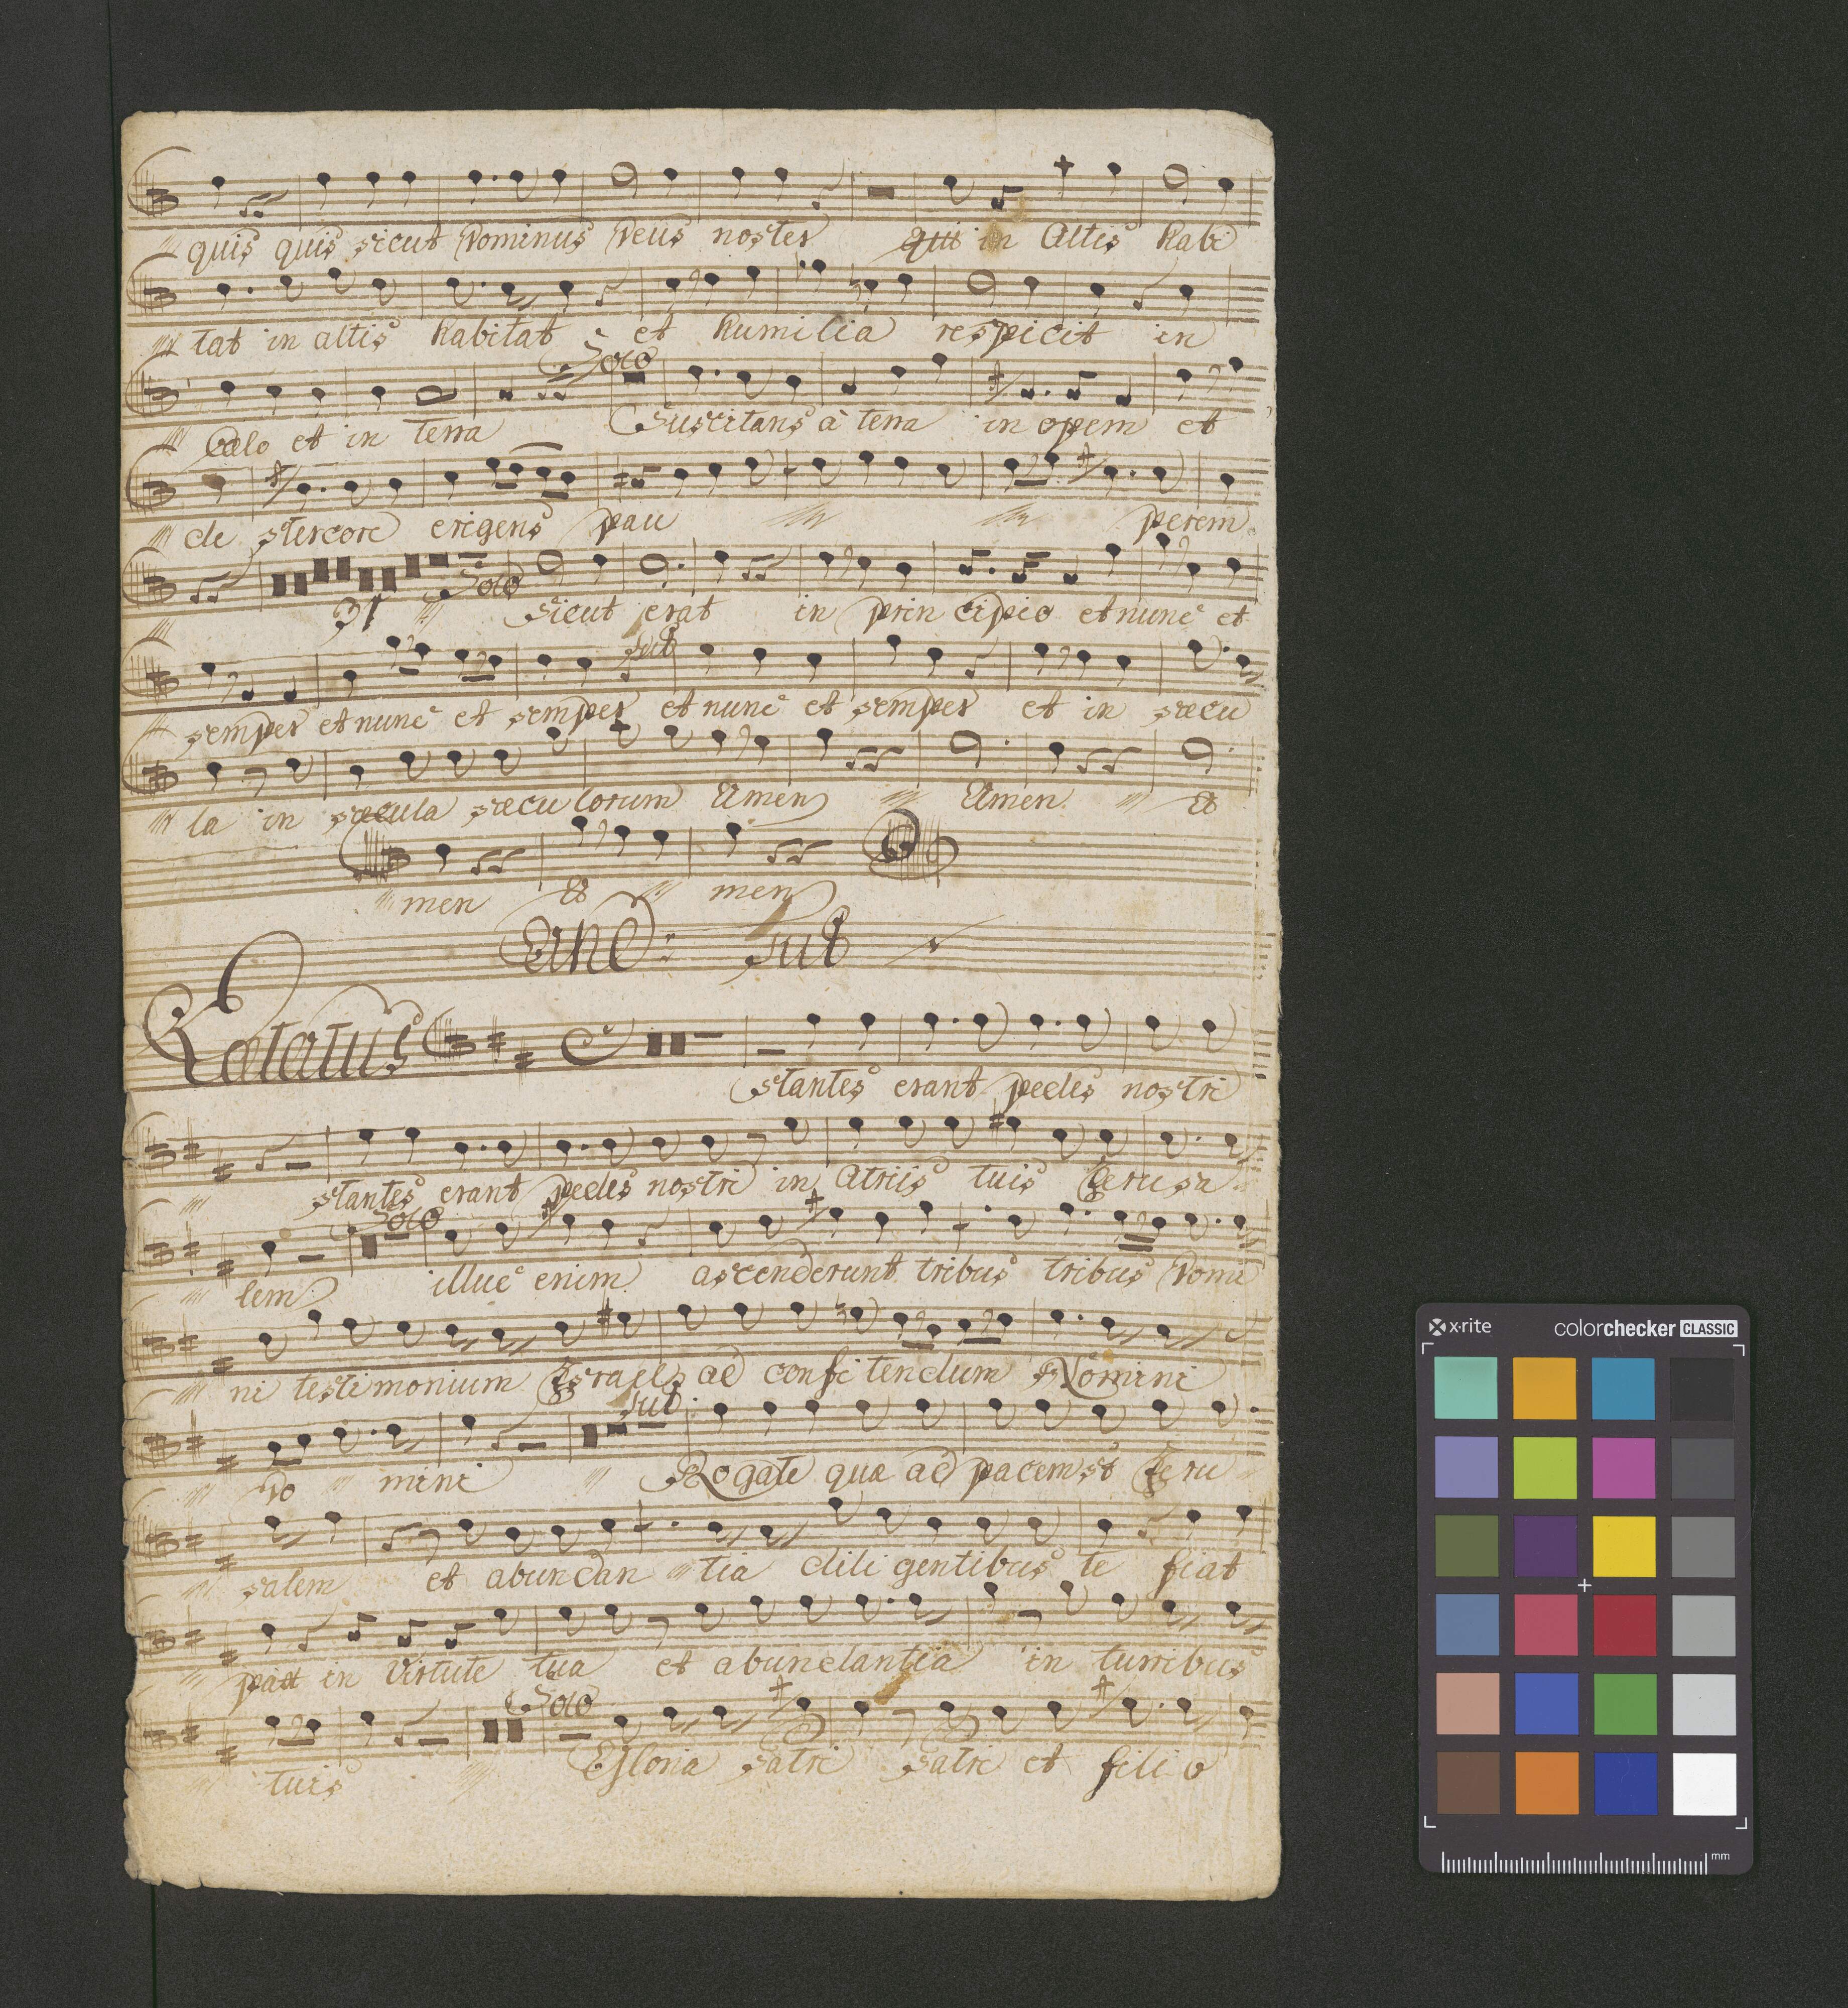 quis quis sicut Dominus Deus noster qui in Altis habi
tat in altis habitat et humilia respicit in
Solo
Cælo et in terra Suscitans à terra in opem et
de stercore erigens pau perem
31 Solo
Sicut erat in prin cipio et nunc et
tut
semper et nunc et semper et nunc et semper et in sæcu
la in sæcula sæcu lorum Amen Amen A
men A men
Ant: Sub
Lætatus
stantes erant pedes nostri
stantes erant pedes nostri in Atriis tuis Jerusa
Solo
lem illuc enim ascenderunt tribus tribus Domi
ni testimonium Israel ad confi tendum Nomini
tut
Do mini Rogate quæ ad pacem st Jeru
salem et abundan tia dili gentibus te fiat
pax in Virtute tua et abundantia in turribus
Solo
tuis Gloria patri patri et fili o
x-rite colorchecker CLASSIC
mm